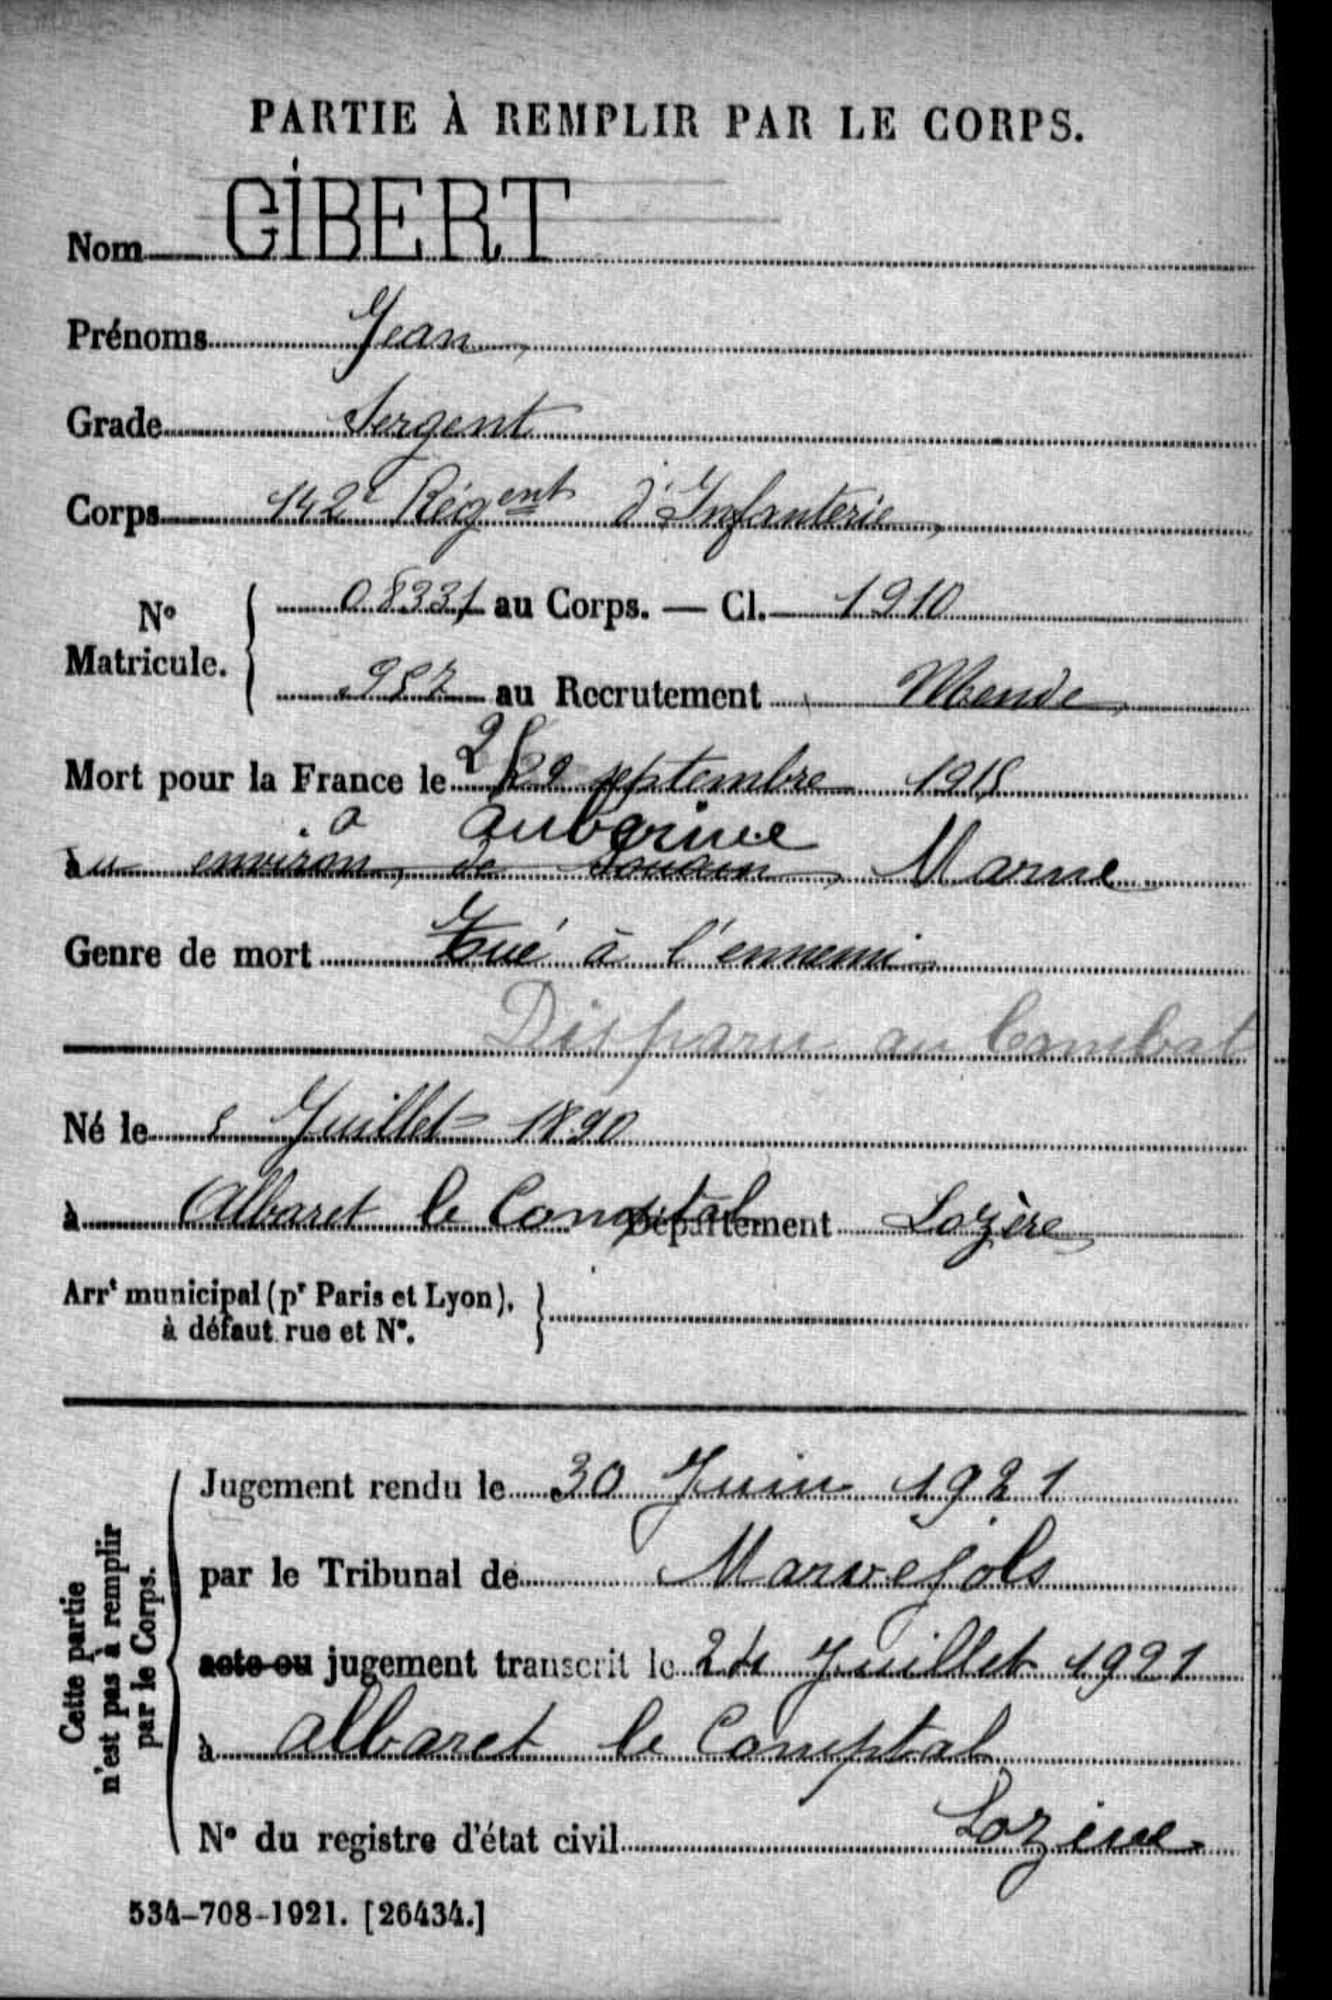 PARTIE À REMPLIR PAR LE CORPS.
Nom GIBERT
Prénoms Jean
Grade Sergent
Corps 142e Régent d'Infanterie
No Matricule. 08331 au Corps. — Cl. 1910
987 au Recrutement Mende
Mort pour la France le septembre 1915
à Auberive
au environ, de Souain, Marne
Genre de mort Tué à l'ennemi
Disparu au Combat
Né le 5 Juillet 1890
à Albaret le Comptal Département Lozère
Arrt municipal (pr Paris et Lyon),
à défaut rue et No.
Cette partie n'est pas à remplir par le Corps.
Jugement rendu le 30 Juin 1921
par le Tribunal de Marvejols
acte ou jugement transcrit le 24 Juillet 1921
à Albaret le Comptal
No du registre d'état civil Lozère
534-708-1921. [26434.]